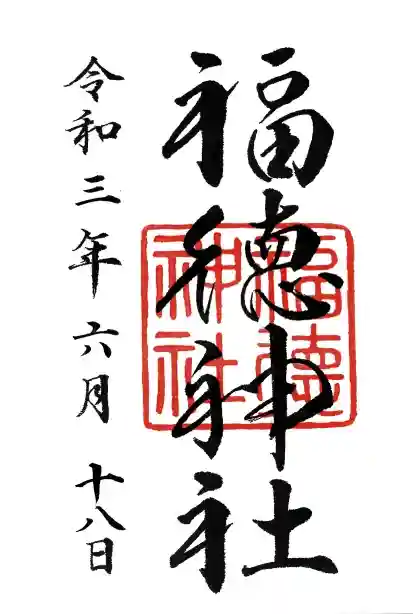 福徳神社
福徳神社
令和三年六月十八日